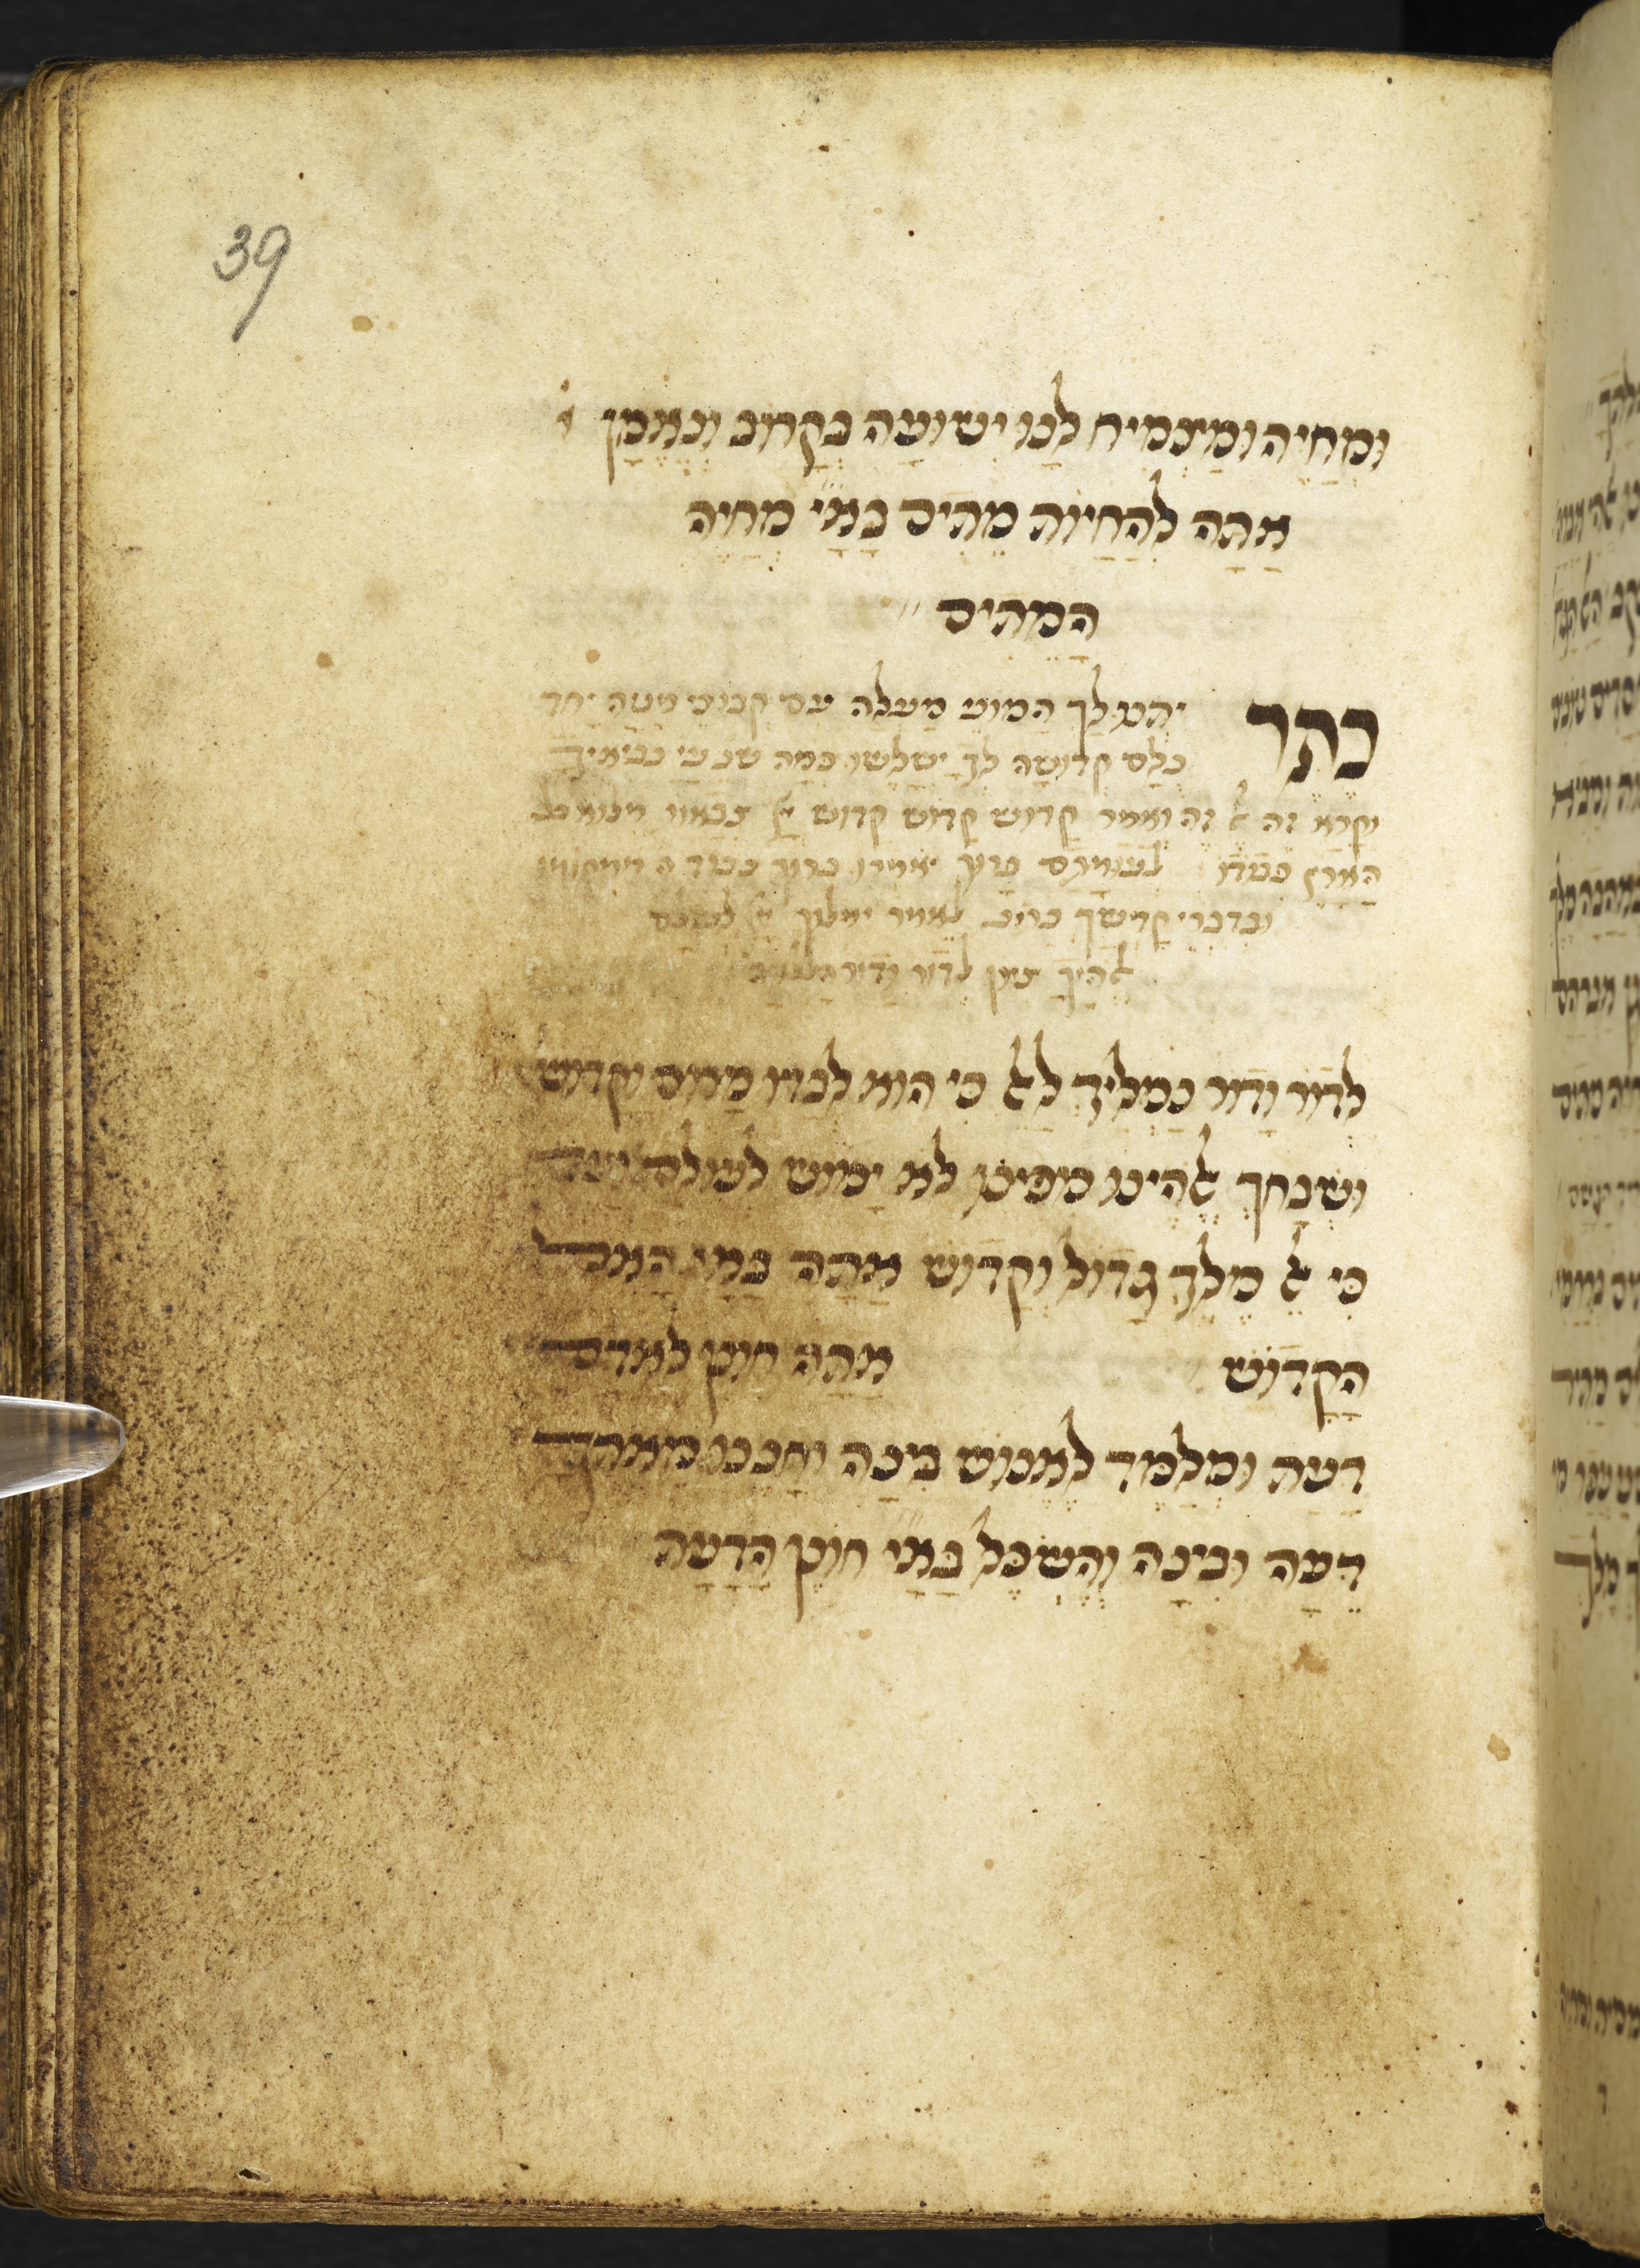 39
וּמְחַיֶה וּמַצְמִיחַ לָנוּ יְשׁוּעָה בְּקָרוֹב וְנֶאֱמָן
אַתָה לְהַחֲיוֹת מֵתִים בָּאַ״יָ מְחַיֵה
הַמֵתִים
כֶתֶר יתנו לך המוני מעלה עם קבוצי מטה יחד
כלם קדושה לך ישלשו כמה שנ׳ ע׳י נביאיך
וקרא זה ﭏ זה ואמר קדוש קדוש קדוש יי צבאו׳ מלוא כל
הארץ כבודו לעומתם ברוך יאמרו ברוך כבוד ה׳ ממקומו
ובדברי קדשך כתיב לאמר ימלוך יי לעולם
ﭏהיך ציון לדור ודור הללויה
לְדוֹר וָדוֹר נַמְלִיךְ לָﭏ כי הוא לבדו מרום וקדוש
ושבחך ﭏהינו מפינו לא ימוש לעולם ועד
כי ﭏ מלך גדול וקדוש אתה באי׳ האל
הקדוש אתה חונן לאדם
דעת ומלמד לאנוש בינה וחננו מאתך
דעה ובינה והשכל באי׳ חונן הדעת